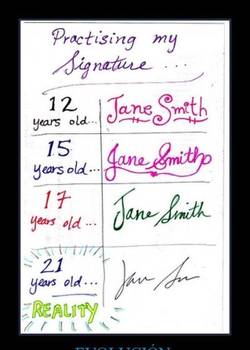 Practising my
Signature ...
12
years old...
Jane Smith
15
years old...
Jane Smith
17
years old...
Jane Smith
21
years old...
REALITY
EVOLUCIÓN